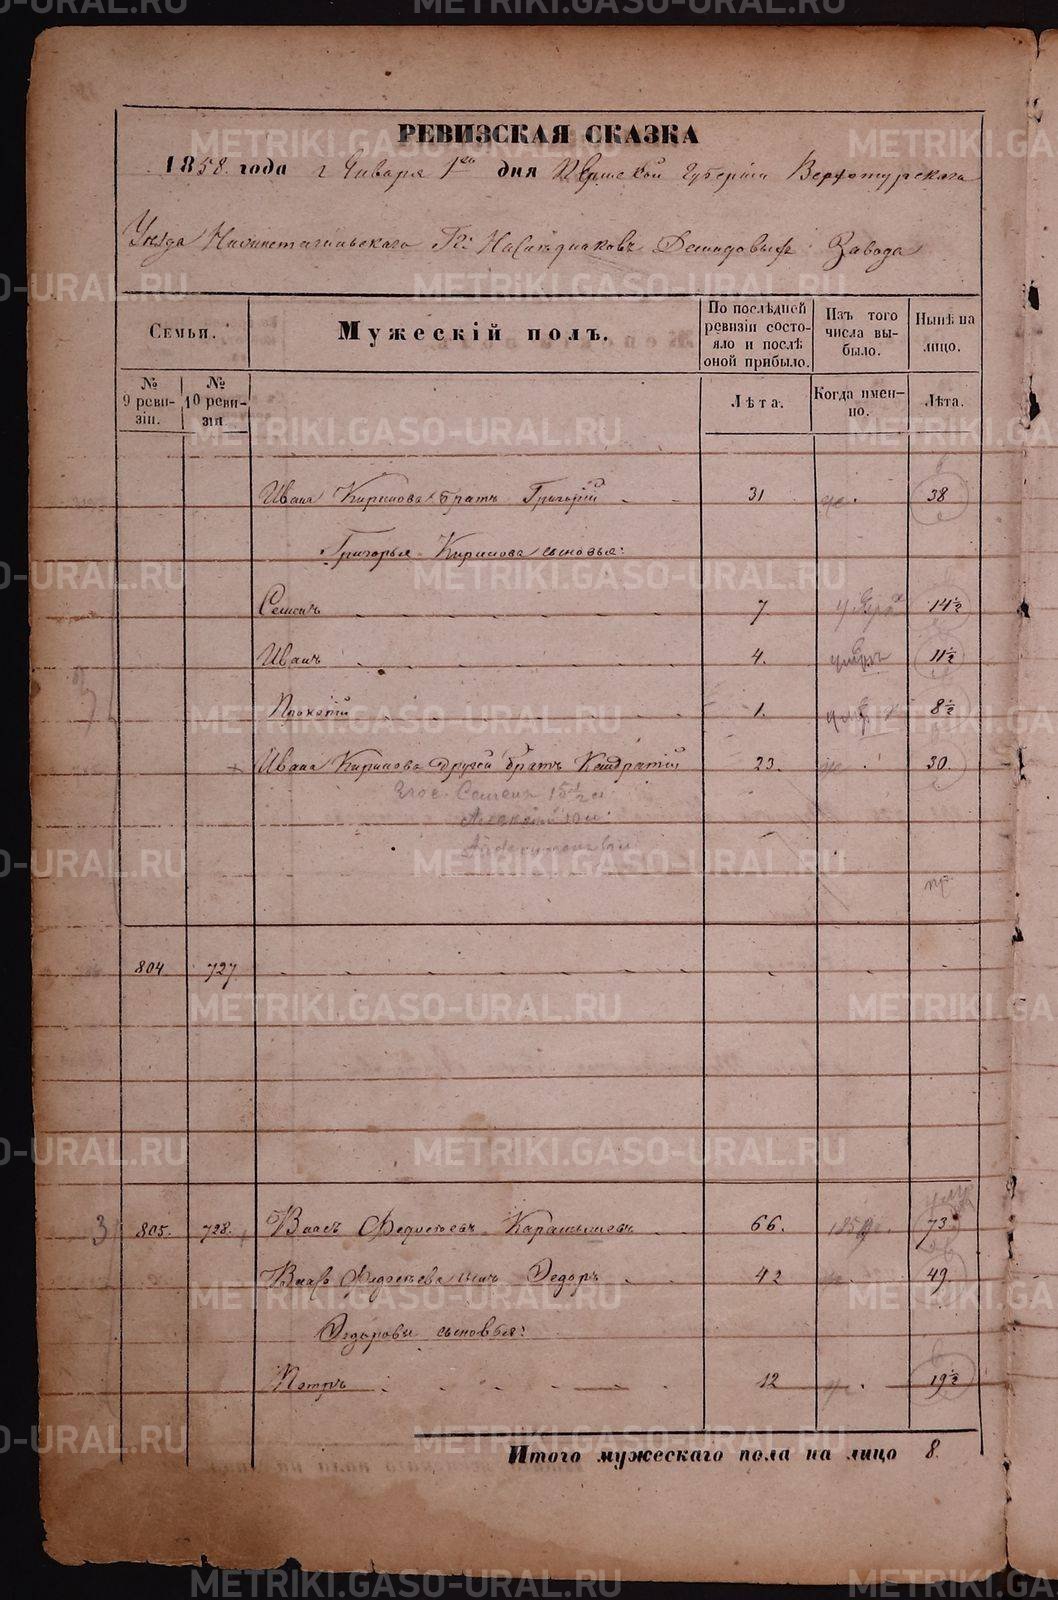 METRIKI.GASO-URAL.RU
РЕВИЗСКАЯ СКАЗКА
1858 года г Января 1го дня Пермской Губернии Верхотурскаго
Уезда Нижнетагильскаго Гг: Наследниковъ Демидовыхъ Завода
Семьи.
Мужескій полъ.
По послѣдней ревизіи состояло и послѣ оной прибыло.
Изъ того числа выбыло.
Нынѣ на лицо.
№ 9 ревизіи.
№ 10 ревизіи
Лѣта.
Когда именно.
Лѣта.
Ивана Кирилова братъ Григорій 31 38
Григорья Кирилова сыновья:
Семенъ 7 14½
Иванъ 4. 11½
Прокопій 1. 8½
Ивана Кирилова другой братъ Кондратій 23. 30.
Его с. Семенъ 15½
804 727.
805. 728. Власъ Федосѣевъ 66. 73
Власа Федосѣева сынъ Федоръ 42 49.
Федоровы сыновья:
Петръ 12 19½
Итого мужескаго пола на лицо 8.